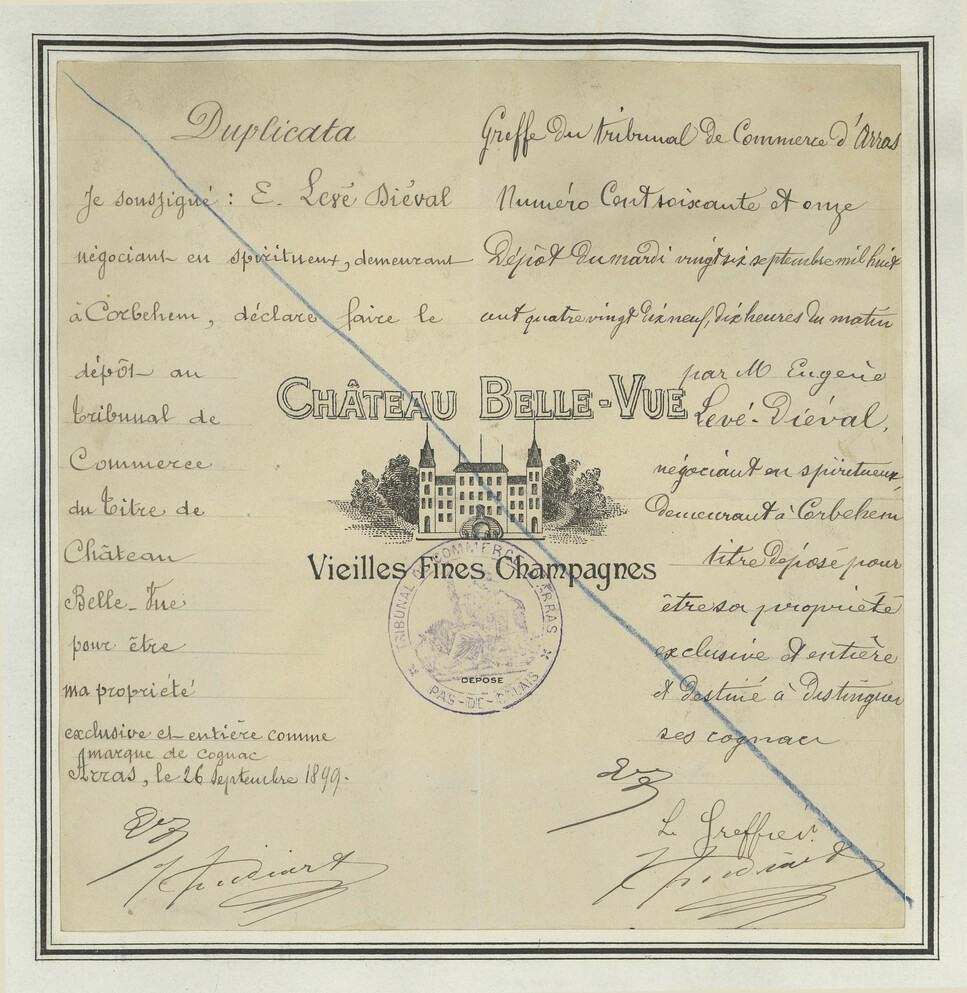 Duplicata
Je soussigné : E. Levé Diéval
négociant en spiritueux, demeurant
à Corbehem, déclare faire le
dépôt au
tribunal de
Commerce
du Titre de
Château
Belle-Vue
pour être
ma propriété
exclusive et entière comme
marque de cognac
Arras, le 26 Septembre 1899.
CHÂTEAU BELLE-VUE
VIEILLES FINES CHAMPAGNES
TRIBUNAL DE COMMERCE D'ARRAS
DÉPOSÉ
PAS-DE-CALAIS
Greffe du tribunal de Commerce d'Arras
Numéro Cent soixante et onze
Dépôt du mardi vingt six septembre mil huit
cent quatre vingt dix neuf, dix heures du matin
par M Eugène
Levé-Diéval,
négociant en spiritueux,
demeurant à Corbehem
titre déposé pour
être sa propriété
exclusive et entière
et destiné à distinguer
ses cognacs
Le Greffier